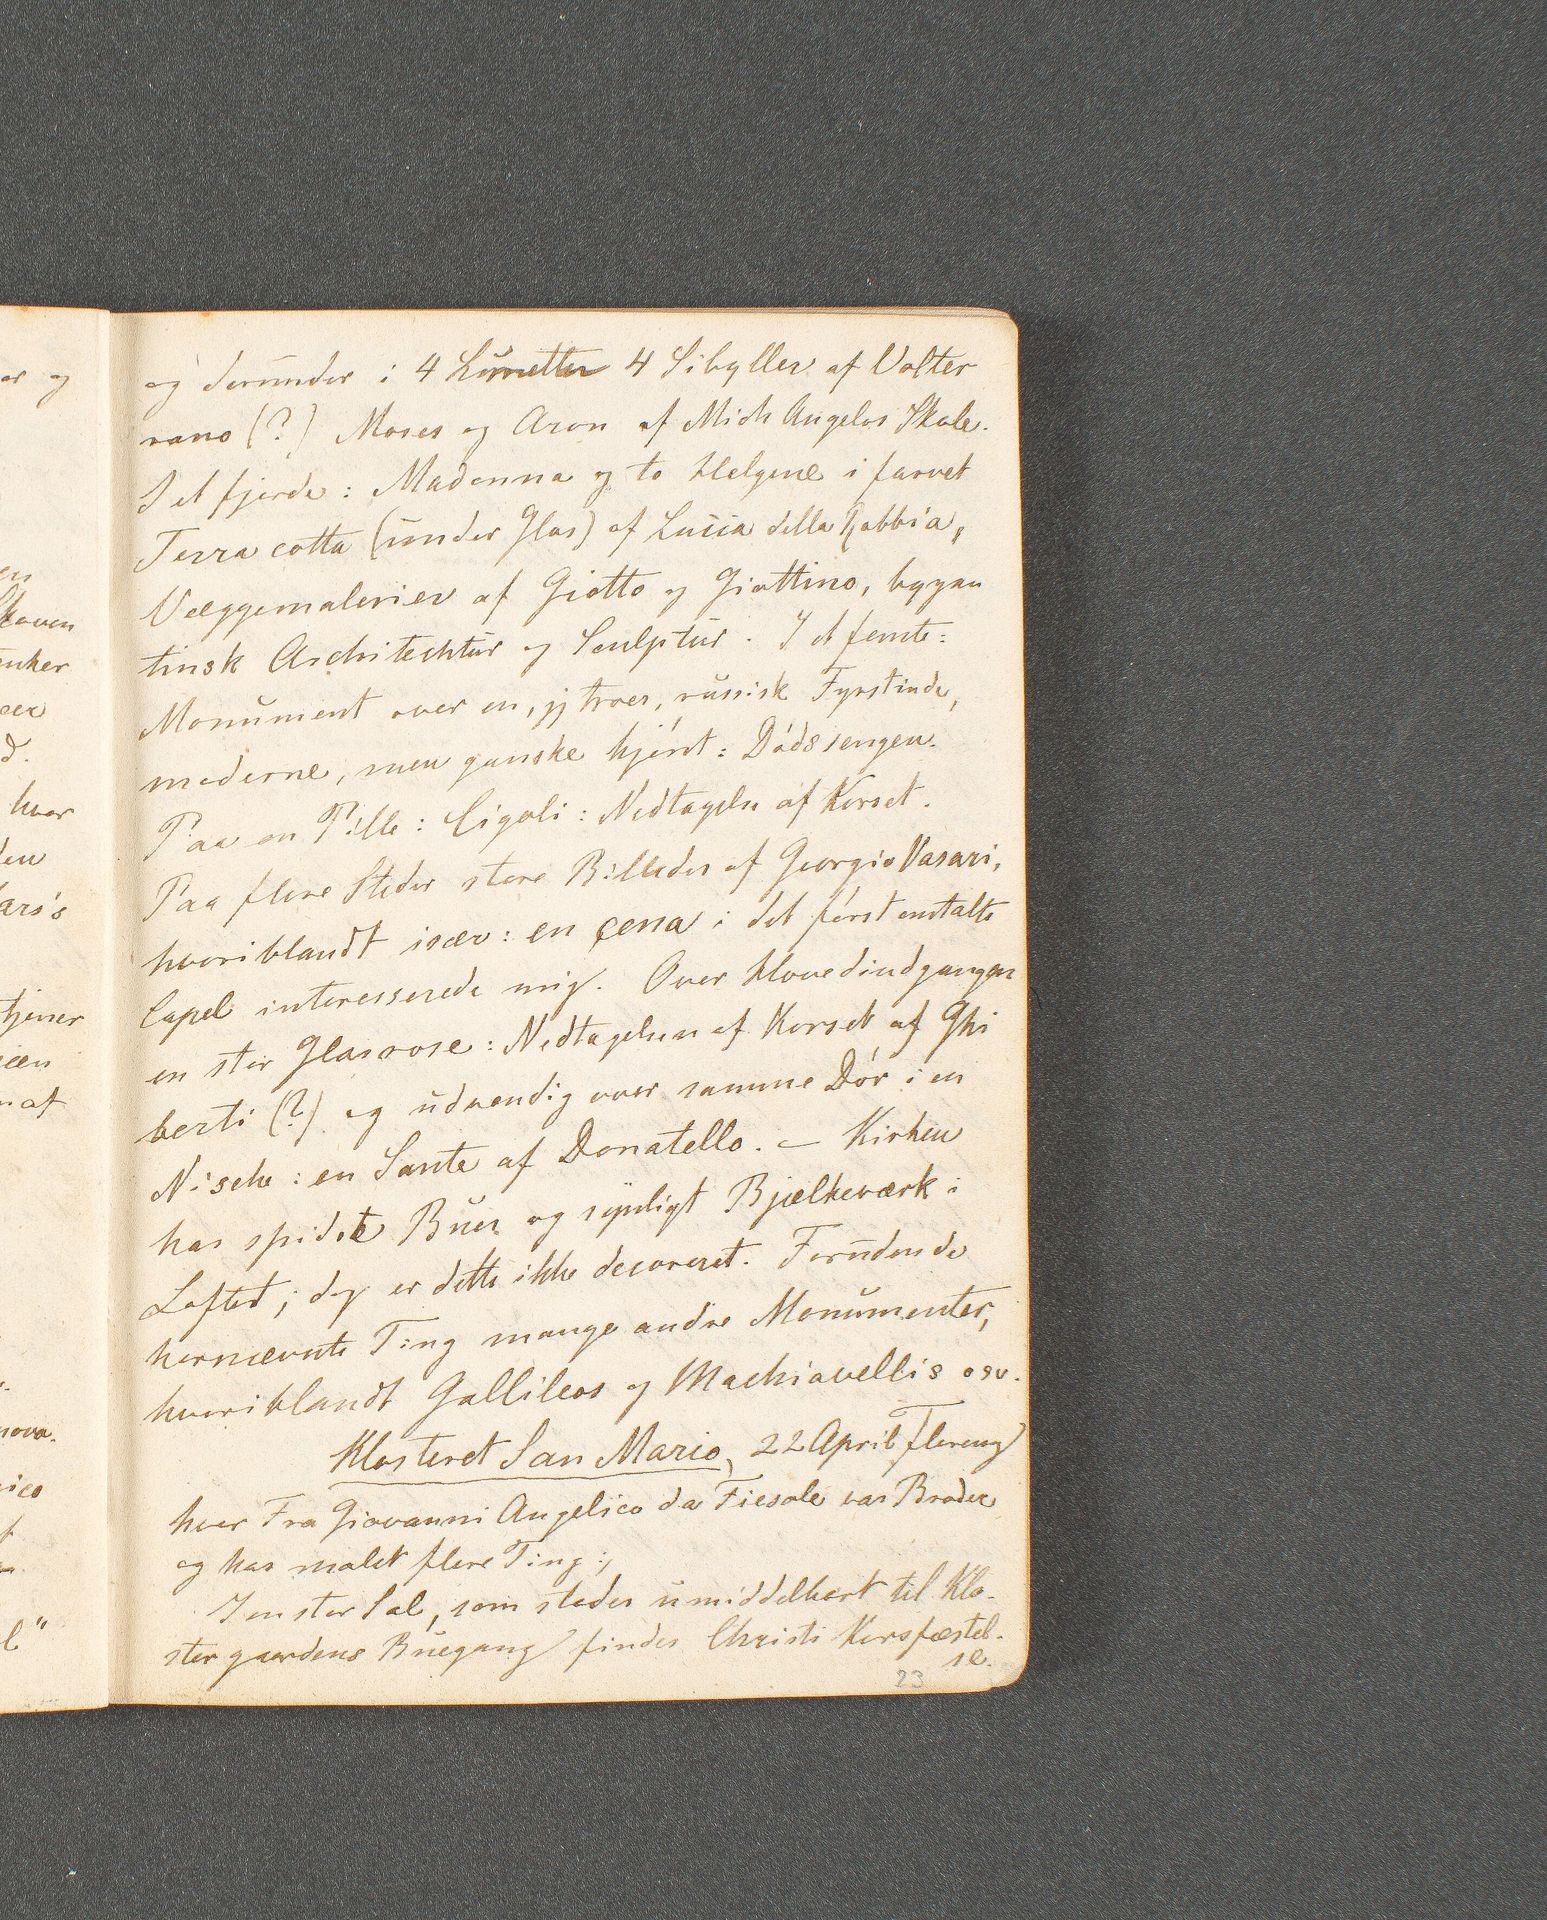 og derunder i 4 Lunetter 4 Sibyller af Volter
rano (?) Moses og Aron af Mich Angelos Skole.
I et fjerde: Madonna og to Helgene i farvet
Terra cotta (under Glas) af Lucia della Robbia,
Væggemalerier af Giotto og Giottino, byzan
tinsk Architechtur og Sculptur. I et femte:
Monument over en, jeg troer, russisk Fyrstinde,
moderne, men ganske kjønt: Dødssengen.
Paa en Pille: Cigoli: Nedtagelse af Korset.
Paa flere Steder store Billeder af Georgio Vasari,
hvoriblandt især: en çena i det först omtalte
Capel interesserede mig. Over Hovedindgangen
en stor Glasrose: Nedtagelsen af Korset af Ghi
berti (?) og udvendig over samme Dör i en
Nische: en Sante af Donatello. — Kirken
har spidse Buer og synligt Bjælkeværk i
Loftet; dog er dette ikke decoreret. Foruden de
hernævnte Ting mange andre Monumenter,
hvoriblandt Gallileos og Machiavellis osv.
Klosteret San Marco, 22 April Florenz
hvor Fra Giovanni Angelico da Fiesole var Broder
og har malet flere Ting:
I en stor Sal, som stöder umiddelbart til Klo-
stergaardens Buegang findes Christi Korsfæstel-
se.
23
er og
en
Skoven
enker
d.
hvor
den
tjener
nat
nova.
nico